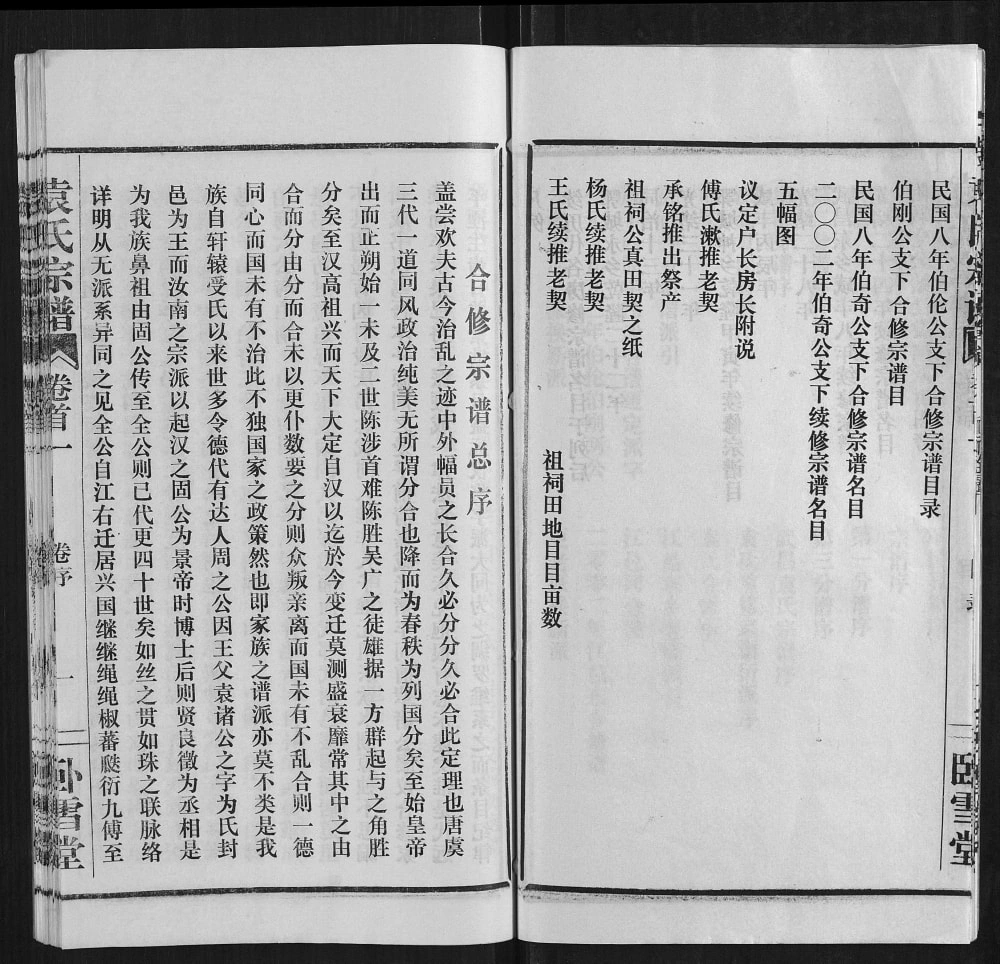 民国八年伯伦公支下合修宗谱目录
伯刚公支下合修宗谱目
民国八年伯奇公支下合修宗谱名目
二〇〇二年伯奇公支下续修宗谱名目
五幅图
议定户长房长附说
傅氏漱推老契
承铭推出祭产
祖祠公真田契之纸
杨氏续推老契
王氏续推老契
祖祠田地目目亩数
卧雪堂
合修宗谱总序
盖尝欢夫古今治乱之迹中外幅员之长合久必分分久必合此定理也唐虞
三代一道同风政治纯美无所谓分合也降而为春秩为列国分矣至始皇帝
出而正朔始一未及二世陈涉首难陈胜吴广之徒雄据一方群起与之角胜
分矣至汉高祖兴而天下大定自汉以迄於今变迁莫测盛衰靡常其中之由
合而分由分而合未以更仆数要之分则众叛亲离而国未有不乱合则一德
同心而国未有不治此不独国家之政策然也即家族之谱派亦莫不类是我
族自轩辕受氏以来世多令德代有达人周之公因王父袁诸公之字为氏封
邑为王而汝南之宗派以起汉之固公为景帝时博士后则贤良徵为丞相是
为我族鼻祖由固公传至全公则已代更四十世矣如丝之贯如珠之联脉络
详明从无派系异同之见全公自江右迁居兴国继继绳绳椒蕃瓞衍九傅至
袁氏宗谱
卷首一
卷序
一
卧雪堂